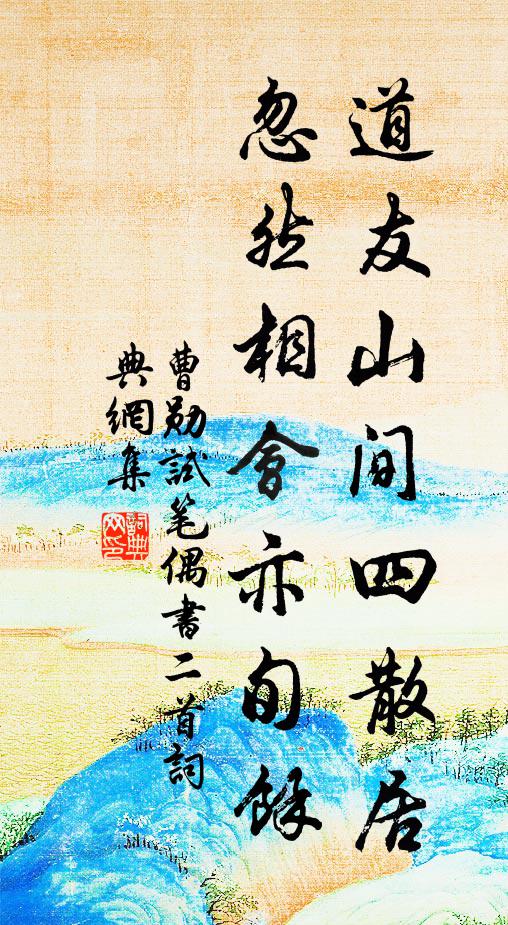 道友山间四散居
忽然相會亦旬餘
曹勛試笔偶書二首詞
典網集
詞典